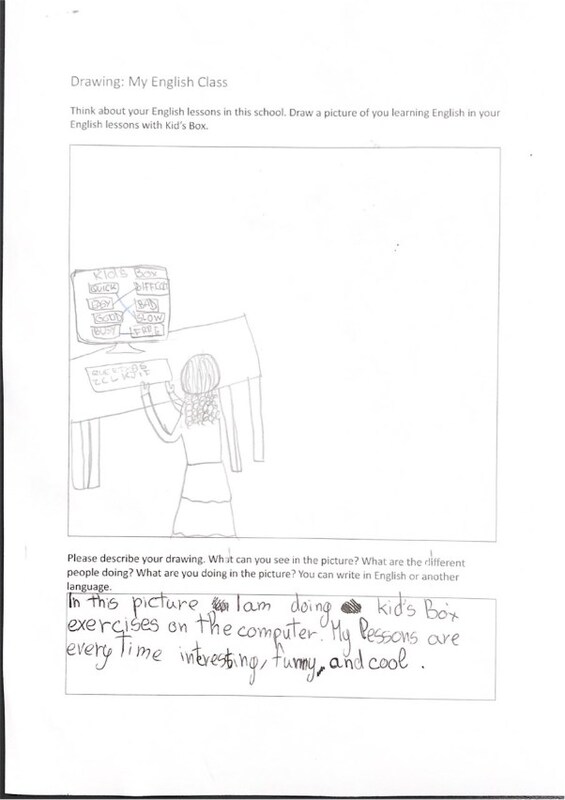 Drawing: My English Class
Think about your English lessons in this school. Draw a picture of you learning English in your
English lessons with Kid's Box.
Kids Box
QUICK
DIFFICU
BAD
GOOD
SLOW
BUSY
FREE
Please describe your drawing. What can you see in the picture? What are the different
people doing? What are you doing in the picture? You can write in English or another
language.
In this picture I am doing kid's Box
exercises on the computer. My lessons are
every time interesting, funny, and cool.